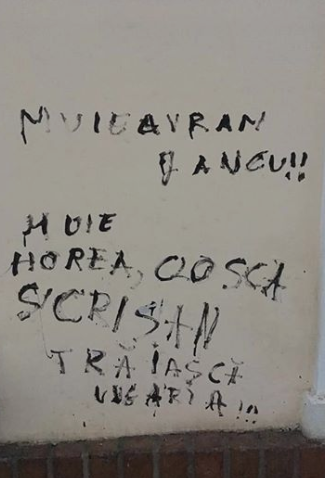 MUIEAVRAM
IANCU!!
MUIE
HOREA, CLOSCA
SCRISAN
TRĂIASCĂ
UNGARIA!!!